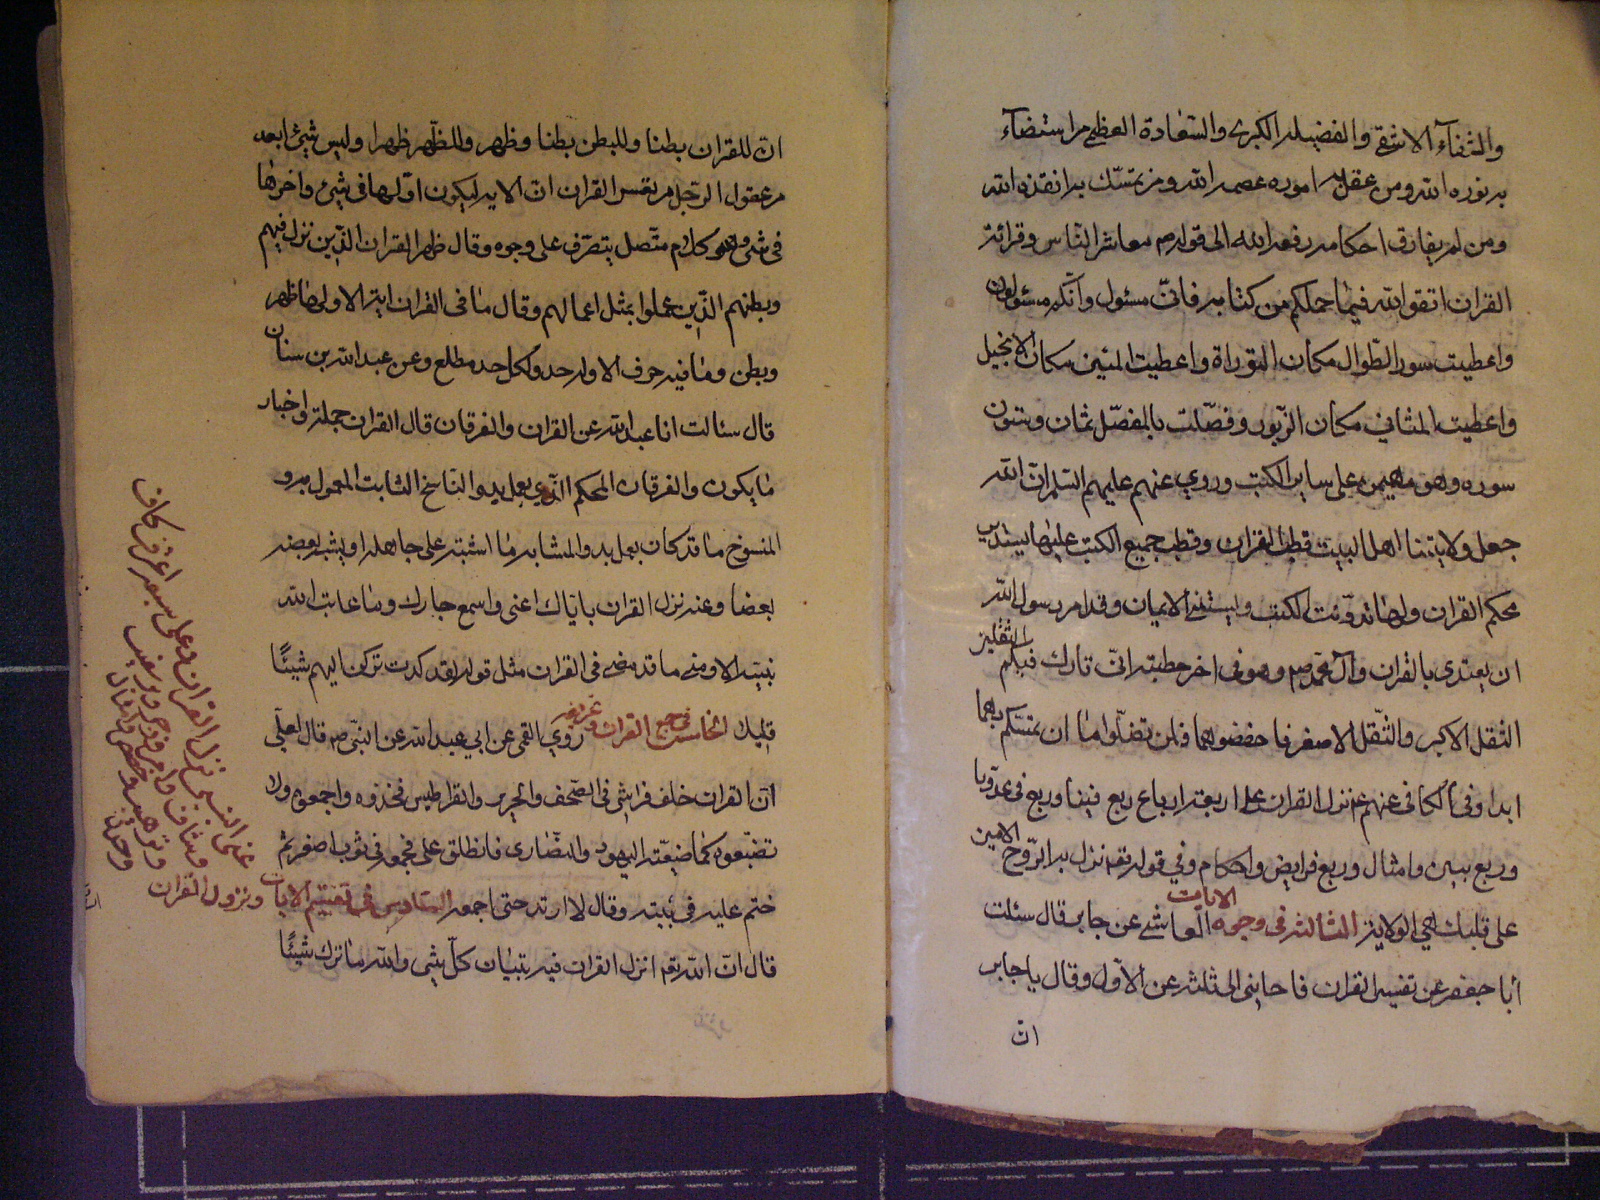 والشفآء الاشفى والفضيله الكبرى والسعادة العظمى من استضآء
به نوره الله ومن عقل به اموره عصمه الله ومن تمسك به انقذه الله
ومن لم يفارق احكامه رفعه الله الى قوله ص معاشر الناس وقرائة
القران اتقوا الله فيما حملكم من كتابه فانى مسئول وانكم مسئولون
واعطيت سور الطوال مكان التوراة واعطيت المئين مكان الانجيل
واعطيت المثاني مكان الزبور وفصّلت بالمفصّل ثمان وستون
سوره وهو مهيمن على ساير الكتب وروي عنهم عليهم السلم ان الله
جعل ولايتنا اهل البيت قطب القران وقطب جميع الكتب عليها يستدير
محكم القران وبها نوهت الكتب ويستبين الايمان وقد امر رسول الله
ان يعتدى بالقران وآل محمد ص وهو في اخر خطبته انى تارك فيكم الثقلين
الثقل الاكبر والثّقل الاصغر فاحفضوهما فلن تضلّوا ما ان تمسكتم بهما
ابدا وفي الكافي عنهم ع نزل القران على اربعة ارباع ربع فينا وربع في عدونا
وربع سنن وامثال وربع فرايض واحكام وفي قوله تعه نزل به الرّوح الامين
على قلبك هي الولاية الثالثة في وجوه الايات العياشي عن جابر قال سئلت
أبا جعفر عن تفسير القران فاجابني الى ثلثه عن الاوّل وقال يا جابر
ان
ان للقران بطنا وللبطن بطنا وظهر وللظّهر ظهرا وليس شيئ ابعد
من عقول الرّجل من تفسير القران انّ الاية ليكون اوّلها في شيئ واخرها
في شيئ وهو كلام متّصل يتصرّف على وجوه وقال ظهر القران الذين نزل فيهم
وبطنهم الذين عملوا بمثل اعمالهم وقال ما في القران اية الا ولها ظهر
وبطن وما فيه حرف الا وله حد ولكل حد مطلع وعن عبد الله بن سنان
قال سئالت ابا عبد الله عن القران والفرقان قال القران جملة واخبار
ما يكون والفرقان المحكم الذي يعمل به والناسخ الثابت المعمول به و
المنسوخ ما قد كان يعمل به والمتشابه ما اشتبه على جاهله او يشبه بعضه
بعضا وعنه نزل القران باياك اعني واسمع جارك وما عاتب الله
نبيّه الا ومنه ما قد مضى في القران مثل قوله لقد كدت تركن اليهم شيئًا
قليلا الخامسة في جمع القران وتحريفه روي القمى عن ابي عبد الله عن النّبي ص قال لعليّ
انّ القران خلف فراشي في الصّحف والحرير والقراطيس فخذوه واجمعوه ولا
تضيّعوه كما ضيّعته اليهود والنصارى فانطلق على فجمعه في ثوب اصفر ثم
ختم عليه في بيته وقال لا ارتد حتى اجمعه السادس في تقسيم الايات ونزول القران
قال انّ الله تعه انزل القران فيه تبيان كلّ شيئ والله ما ترك شيئًا
عن النبي نزل القران على سبعة احرف كاف
وشاف وامر وزجر وترغيب
وترهيب وقصص وامثال